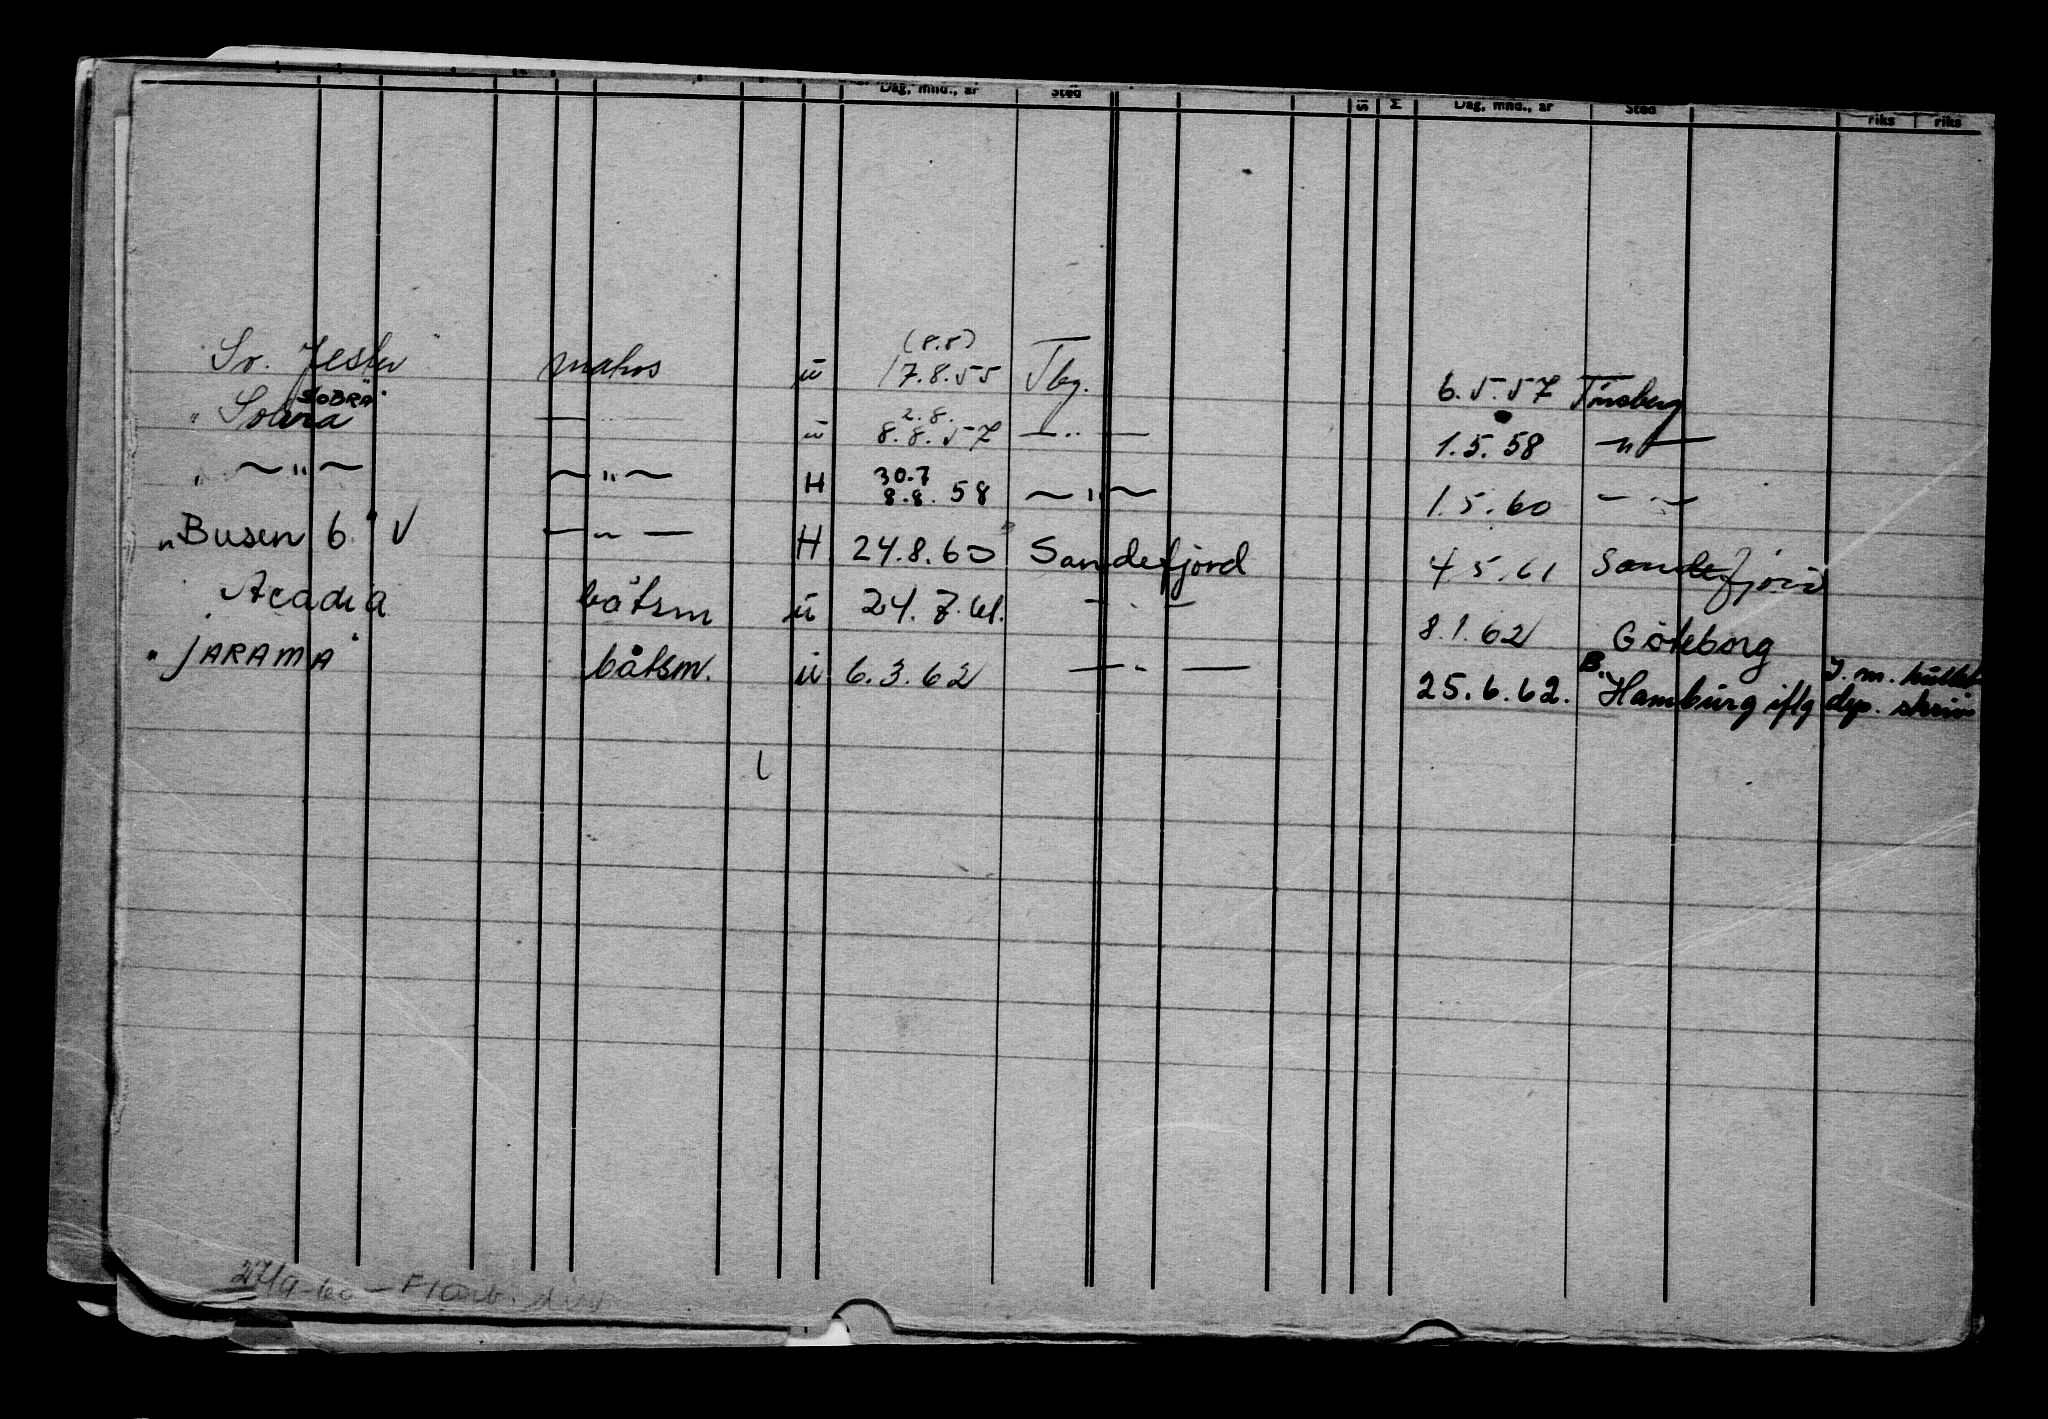 Dag, mnd., år Sted Dag, mnd., år Sted riks riks
Sv. matros u (8.8) 17.8.55 Tbg. 6.5.57 Tønsberg
" Sobra SOBRA" — u 2.8. 8.8.57 — " — 1.5.58 — " —
" — " — — " — H 30.7 8.8.58 — " — 1.5.60 — " —
"Busen 6" V — " — H 24.8.60 Sandefjord 4.5.61 Sandefjord
Acadia båtsm u 24.7.61. — " — 8.1.62 Göteborg
"JARAMA" båtsm. u 6.3.62 — " — 25.6.62. B. Hamburg iflg dep. skriv
J. m.
27/9-60 —